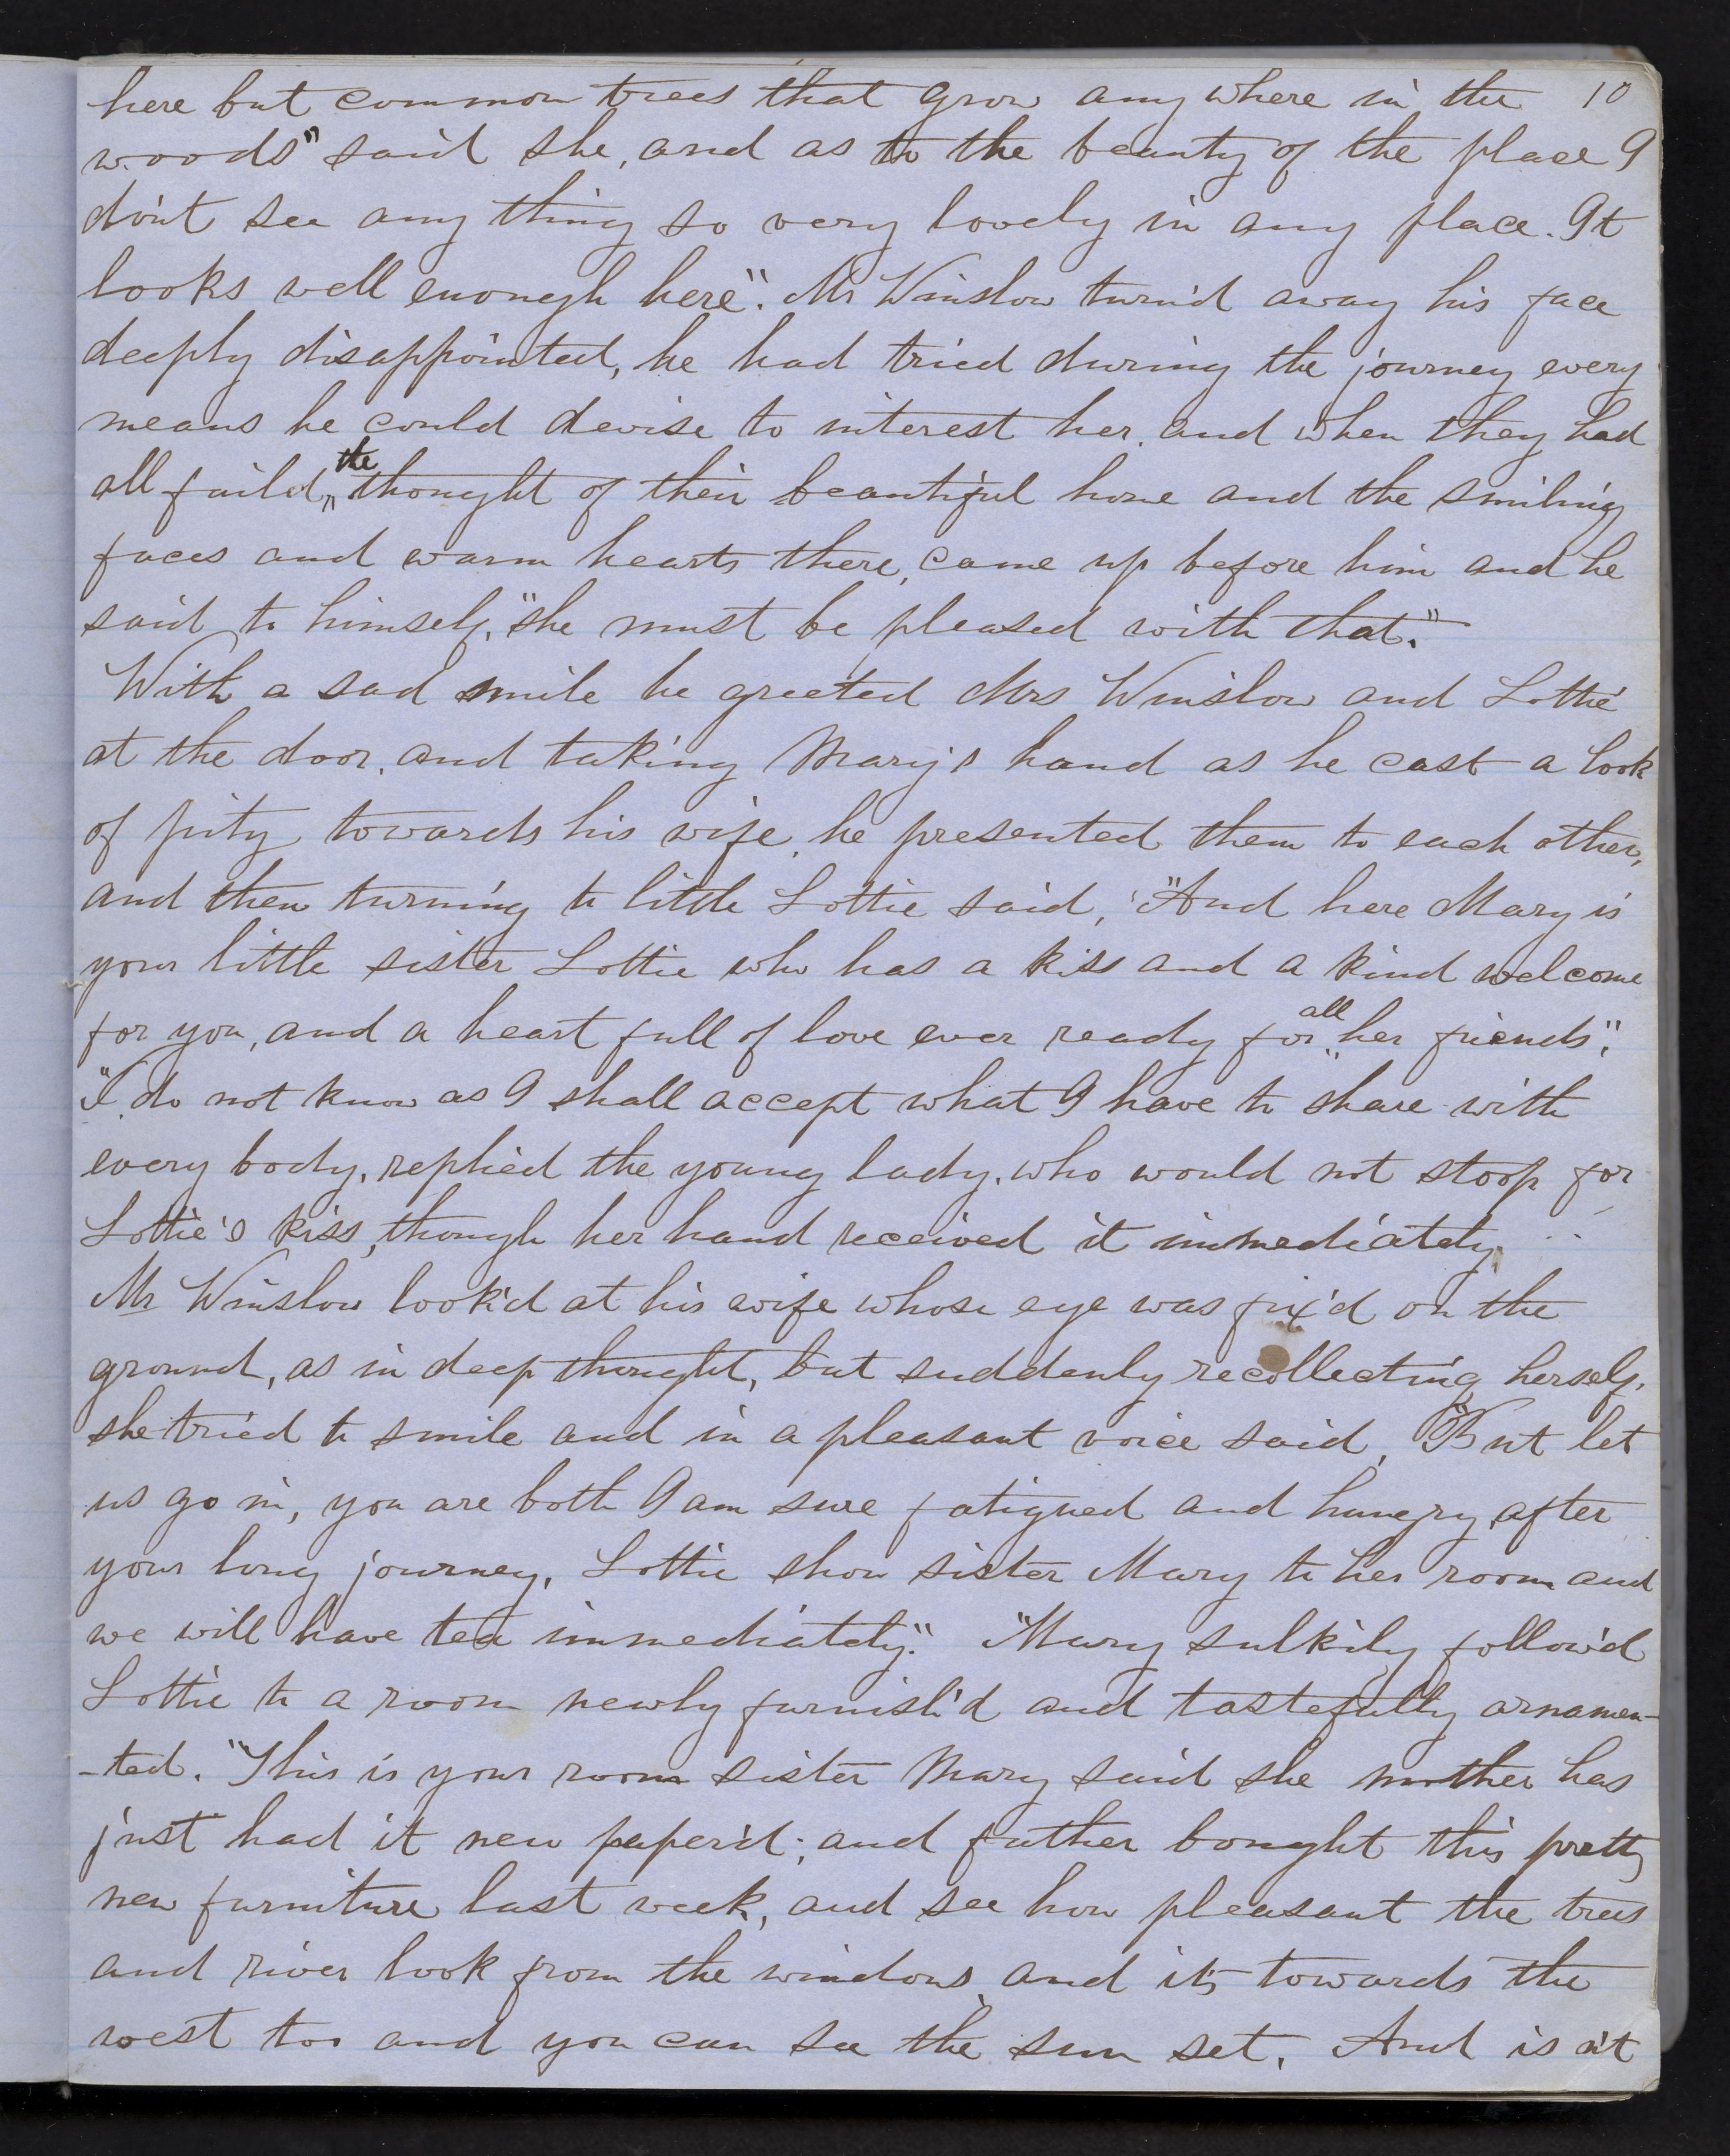 here but common trees that grow any where in the 10
woods" said she, and as to the beauty of the place I
do'nt see any thing so very lovely in any place. It
looks well enough here". Mr Winslow turn'd away his face
deeply disappointed, he had tried during the journey every
means he could devise to interest her. and when they had
all faild, the thought of their beautiful home and the smiling
faces and warm hearts there, came up before him and he
said to himself, "she must be pleased with that."
With a sad smile he greeted Mrs Winslow and Lottie
at the door. and taking Mary's hand as he cast a look
of pity towards his wife, he presented them to each other,
and then turning to little Lottie said, "And here Mary is
your little sister Lottie who has a kiss and a kind welcome
for you, and a heart full of love ever ready for all her friends".
"I do not know as I shall accept what I have to share with
every body, replied the young lady, who would not stoop for
Lottie's kiss, though her hand received it immediately.
Mr Winslow look'd at his wife whose eye was fix'd on the
ground, as in deep thought, but suddenly recollecting herself.
she tried to smile and in a pleasant voice said, "But let
us go in, you are both I am sure fatigued and hungry after
your long journey. Lottie show sister Mary to her room and
we will have tea immediately". "Mary sulkily follow'd
Lottie to a room newly furnish'd and tastefully ornamen-
-ted. "This is your room sister Mary said she mother has
just had it new paper'd; and father bought this pretty
new furniture last week, and see how pleasant the trees
and river look from the windows and its towards the
west too and you can see the sun set. And is n't